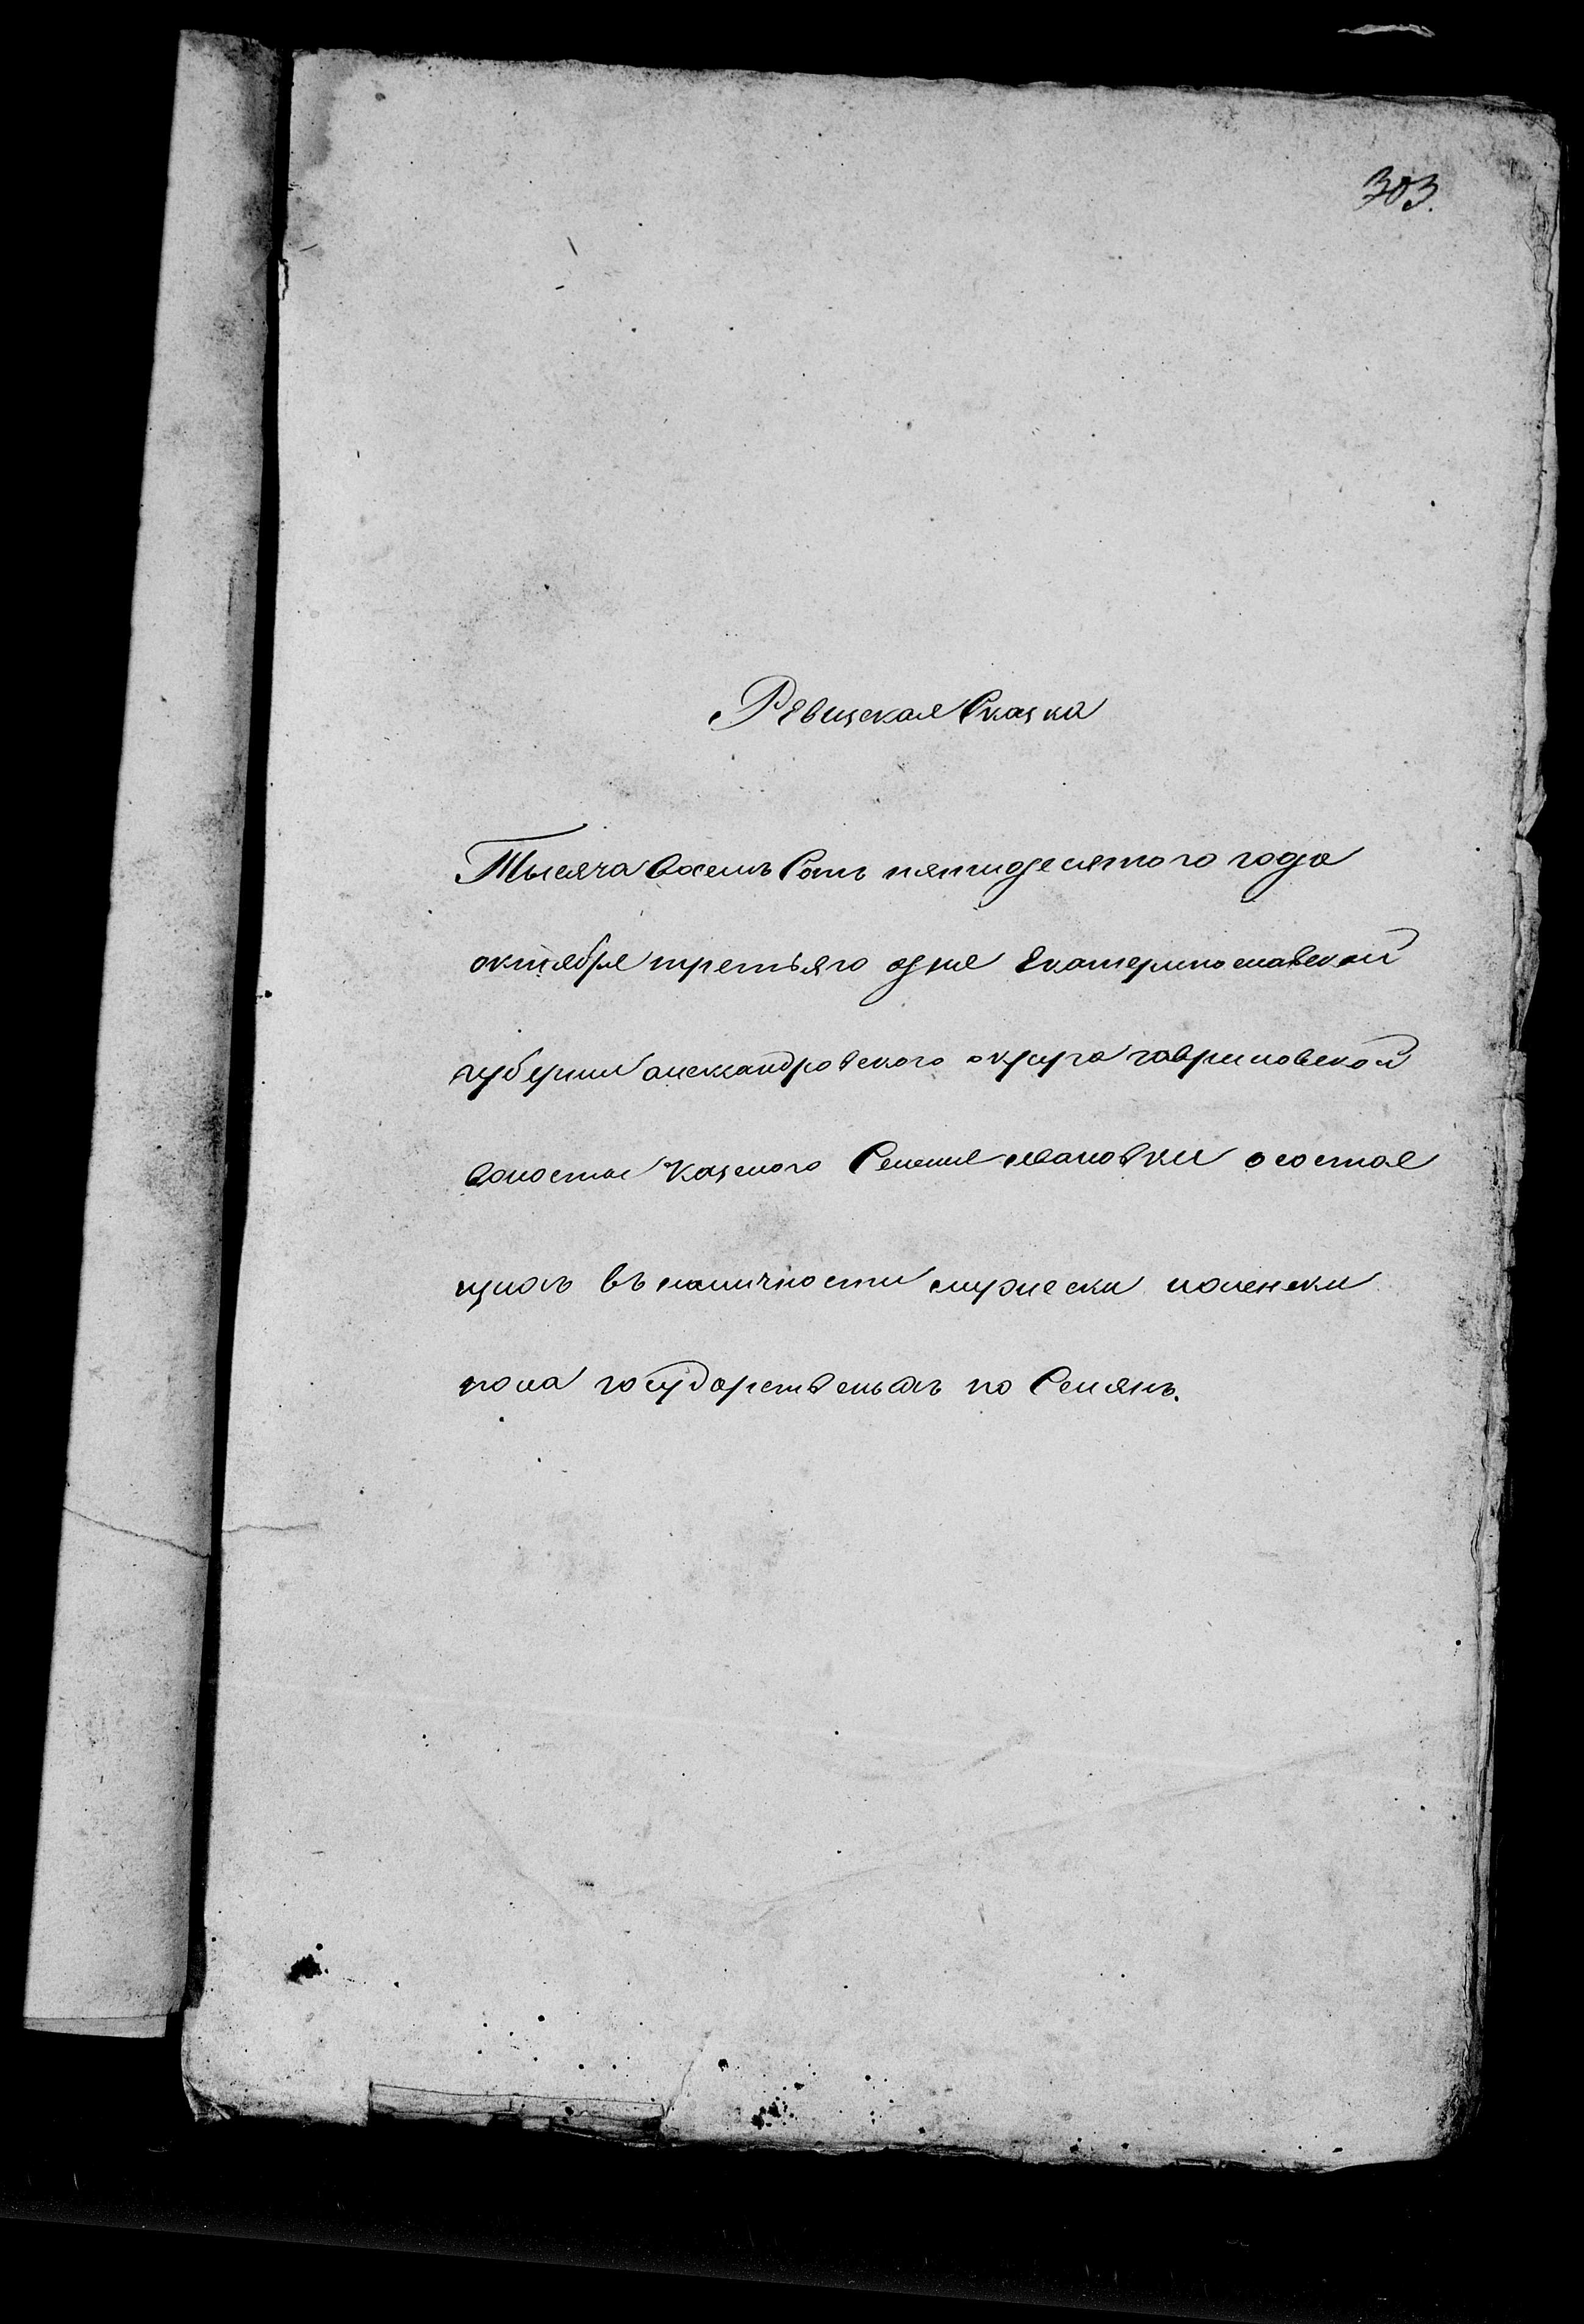 303.
Ревизская Сказка
Тысяча Восемь Сотъ пятидесятого года
октября третьяго дня Екатеринославской
губернии александровского округа гавриловской
Волости Казеного Селения ивановки о состоя
щихъ въ наличности мужеска и женска
пола государственыхъ по Селянъ.